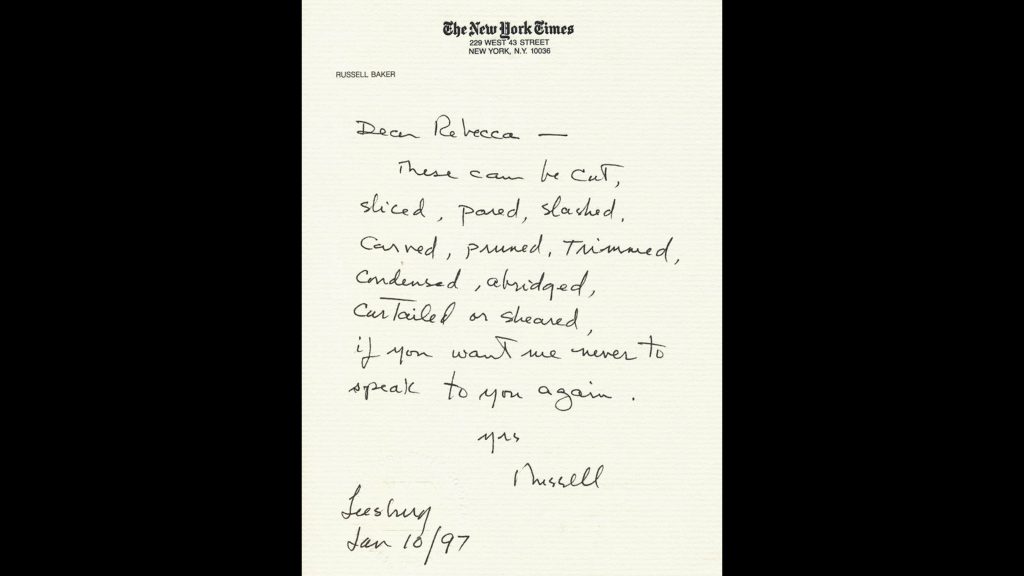 The New York Times
229 WEST 43 STREET
NEW YORK, N.Y. 10036
RUSSELL BAKER
Dear Rebecca —
These can be cut,
sliced, pared, slashed,
carved, pruned, trimmed,
condensed, abridged,
curtailed or sheared,
if you want me never to
speak to you again.
yrs
Russell
Leesburg
Jan 10/97